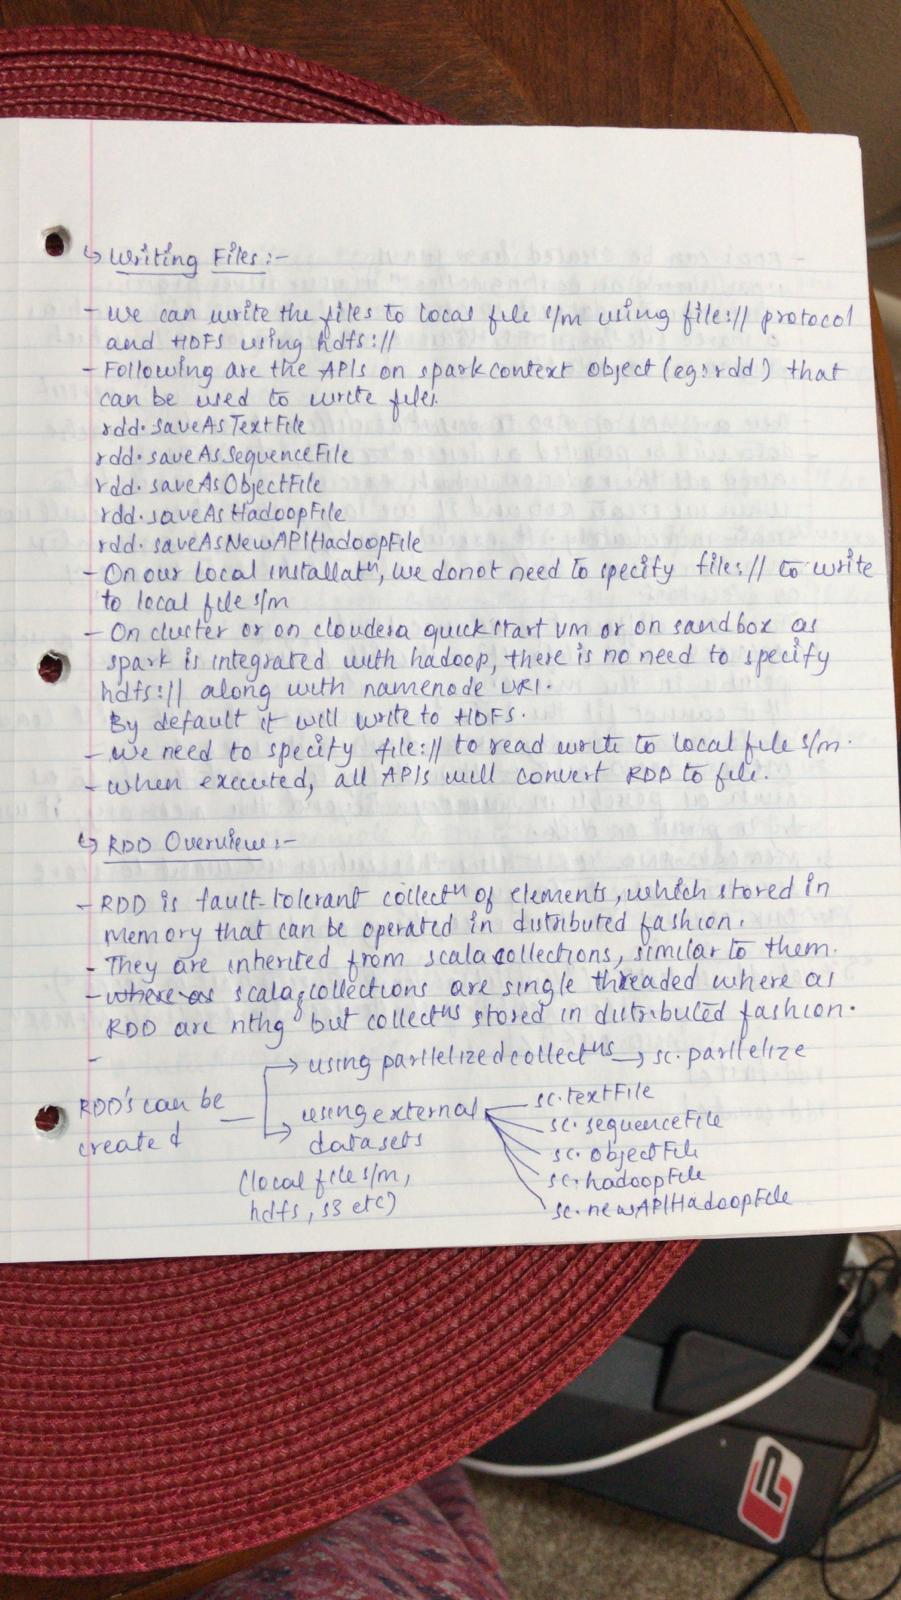 ↳ Writing Files :-
- We can write the files to local file s/m using file:// protocol
and HDFS using hdfs://
- Following are the APIs on spark context object (eg: rdd) that
can be used to write files.
rdd. saveAsTextFile
rdd. saveAsSequenceFile
rdd. saveAsObjectFile
rdd. saveAsHadoopFile
rdd. saveAsNewAPIHadoopFile
- On our local installatⁿ, we donot need to specify file:// to write
to local file s/m
- On cluster or on cloudera quickstart vm or on sandbox as
spark is integrated with hadoop, there is no need to specify
hdfs:// along with namenode URI.
By default it will write to HDFS.
- We need to specify file:// to read write to local file s/m.
- When executed, all APIs will convert RDD to file.
↳ RDD Overview :-
- RDD is fault-tolerant collectⁿ of elements, which stored in
memory that can be operated in distributed fashion.
- They are inherited from scala collections, similar to them.
- where as scala collections are single threaded where as
RDD are nthg but collectⁿs stored in distributed fashion.
-
RDD's can be
created
using parllelized collectⁿs → sc. parllelize
using external
datasets
(local file s/m,
hdfs, s3 etc)
sc. textFile
sc. sequenceFile
sc. objectFile
sc. hadoopFile
sc. newAPIHadoopFile